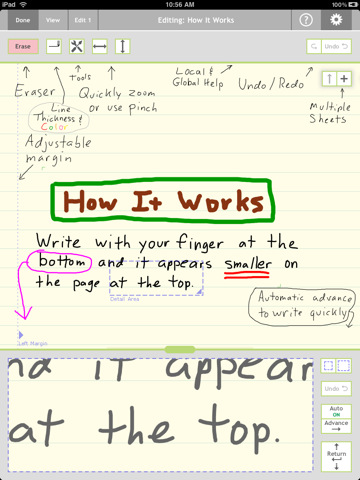 iPad 10:56 AM 100%
Done View Edit 1 Editing: How It Works ?
Erase Undo
Eraser Tools Quickly zoom or use pinch Local & Global Help Undo / Redo
Line Thickness & Color
Multiple Sheets
Adjustable margin
How It Works
Write with your finger at the
bottom and it appears smaller on
the page at the top.
Detail Area
Automatic advance
to write quickly
Left Margin
nd it appear
at the top.
Undo
Auto
ON
Advance
Return